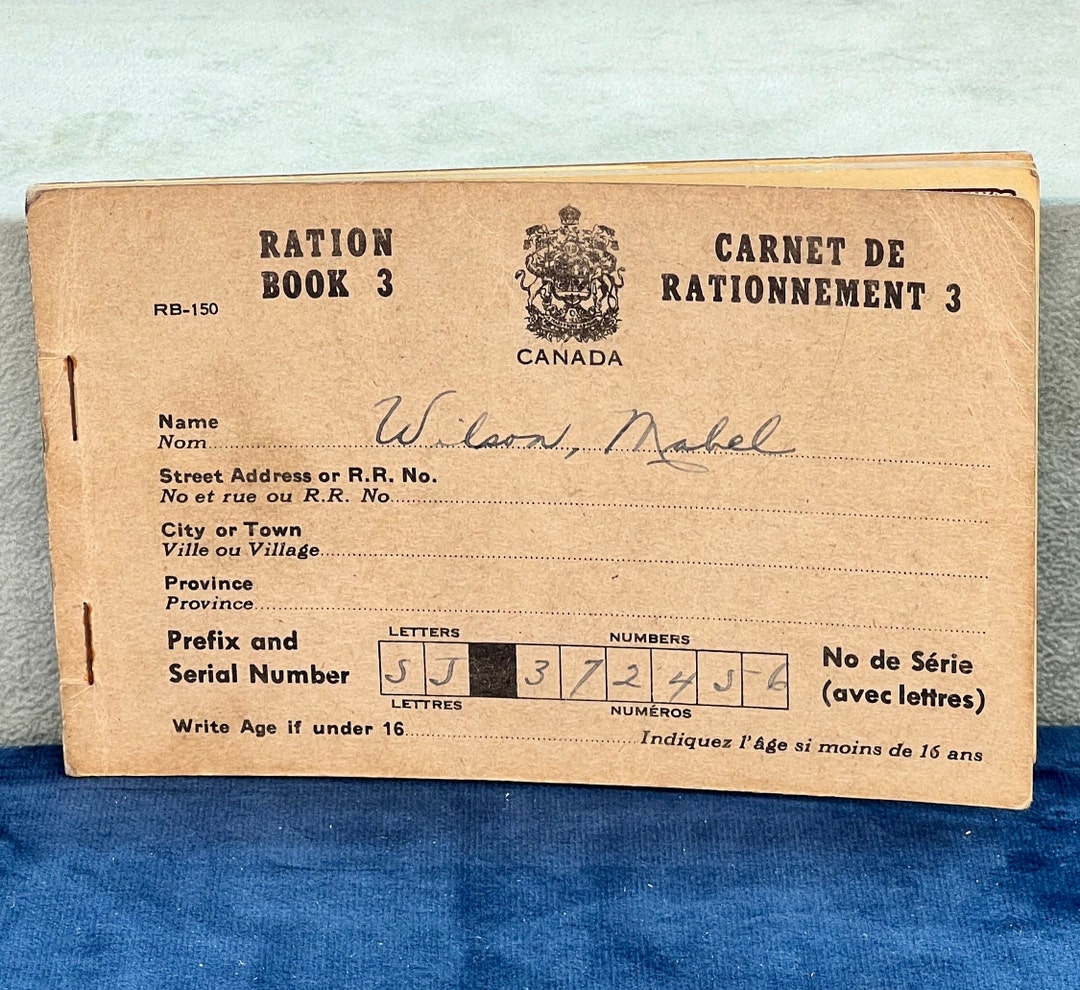 RATION
BOOK 3
CARNET DE
RATIONNEMENT 3
RB-150
CANADA
Name
Nom Wilson, Mabel
Street Address or R.R. No.
No et rue ou R.R. No
City or Town
Ville ou Village
Province
Province
Prefix and
Serial Number
LETTERS NUMBERS
S J 3 7 2 4 5 6
LETTRES NUMÉROS
No de Série
(avec lettres)
Write Age if under 16 Indiquez l'âge si moins de 16 ans